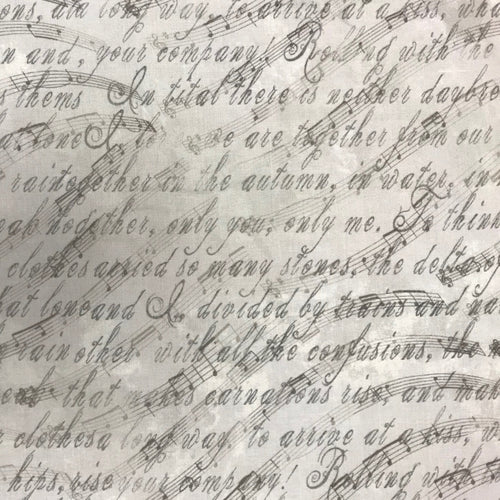 ons, ala long way, to arrive at a kiss, wh
n and, your company! Rolling with the
s thems In total there is neither daybre
at lone I to we are together from our
raintogether in the autumn, in water, in
eak together, only you, only me. To think
clothes arried so many stones, the delta of
at loneand I, divided by trains and na
rain other with all the confusions, the
that makes carnations rise, and mak
clothesa long way, to arrive at a kiss, w
hips, rise your company! Rolling with t